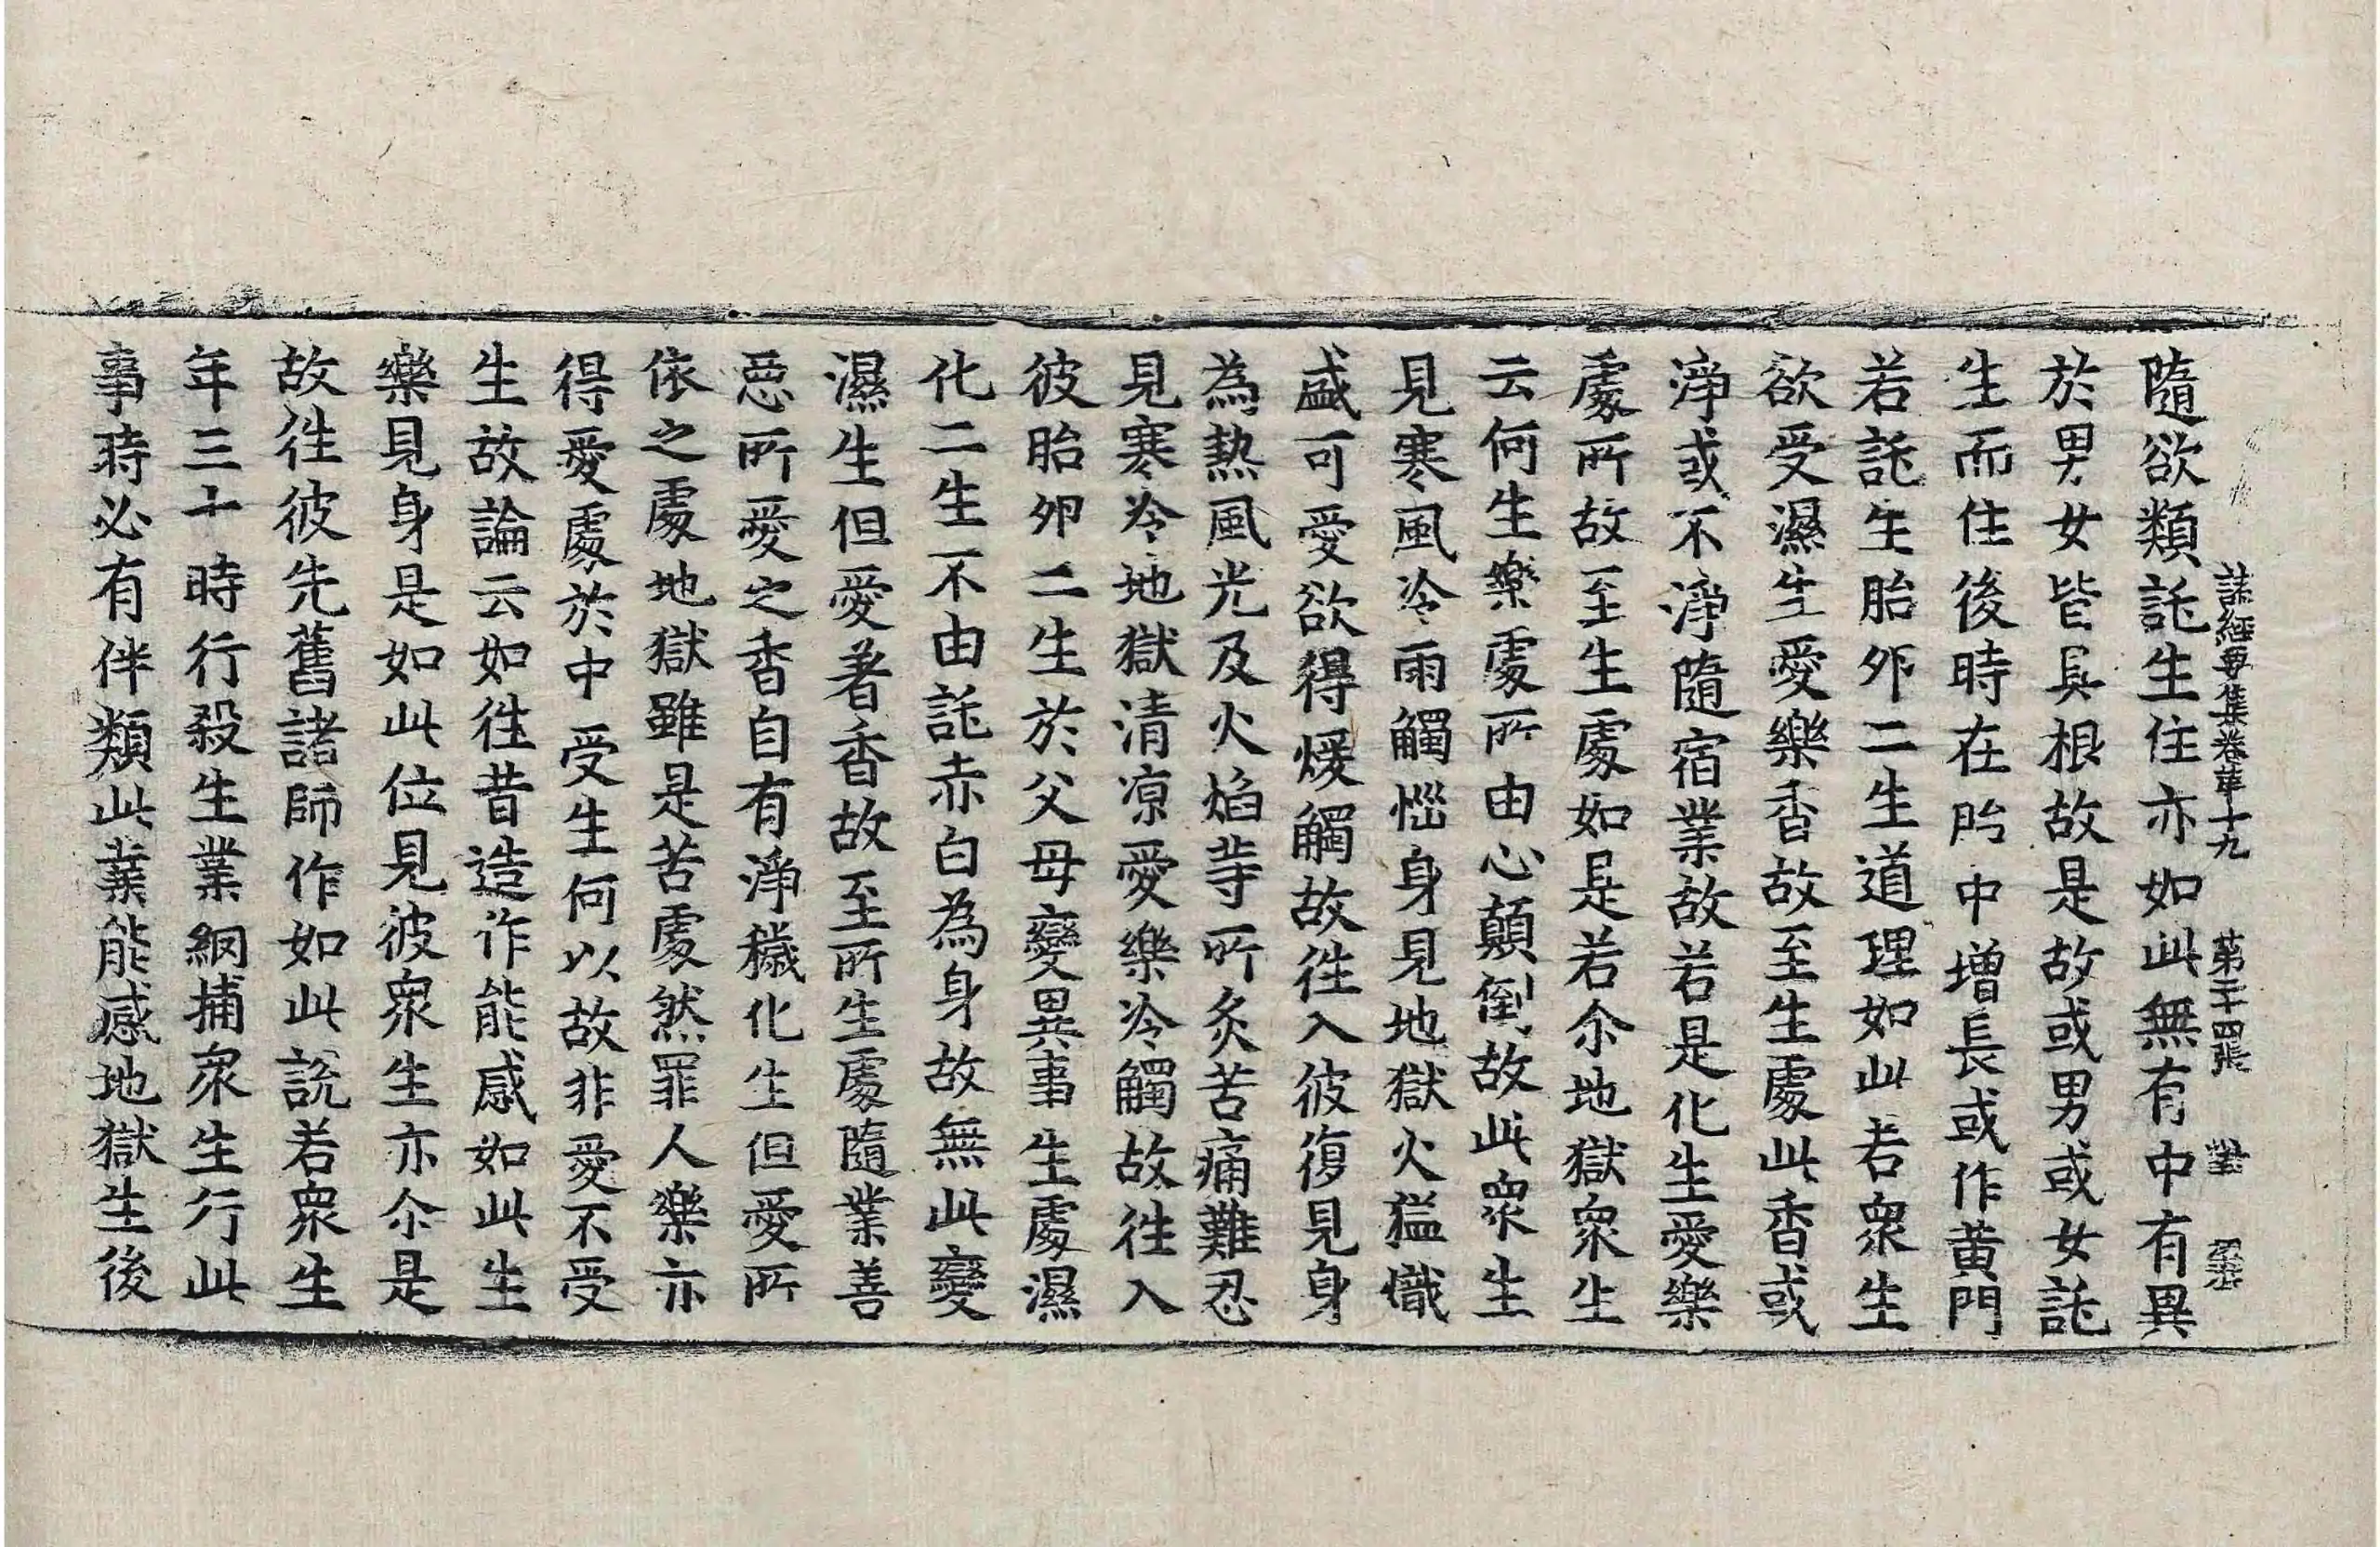 諸經要集卷第十九 第二十四張 對
隨欲類託生住亦如此無有中有異
於男女皆具根故是故或男或女託
生而住後時在胎中增長或作黃門
若託生胎卵二生道理如此若眾生
欲受濕生愛樂香故至生處此香或
淨或不淨隨宿業故若是化生愛樂
處所故至生處如是若尒地獄眾生
云何生樂處所由心顛倒故此眾生
見寒風冷雨觸惱身見地獄火猛熾
盛可愛欲得煖觸故徃入彼復見身
為熱風光及火焰等所炙苦痛難忍
見寒冷地獄清涼愛樂冷觸故徃入
彼胎卵二生於父母變異事生處濕
化二生不由託赤白為身故無此變
濕生但愛著香故至所生處隨業善
惡所愛之香自有淨穢化生但愛所
依之處地獄雖是苦處然罪人樂亦
得愛處於中受生何以故非愛不受
生故論云如徃昔造作能感如此生
樂見身是如此位見彼眾生亦尒是
故徃彼先舊諸師作如此說若眾生
年三十時行殺生業網捕眾生行此
事時必有伴類此業能感地獄生後